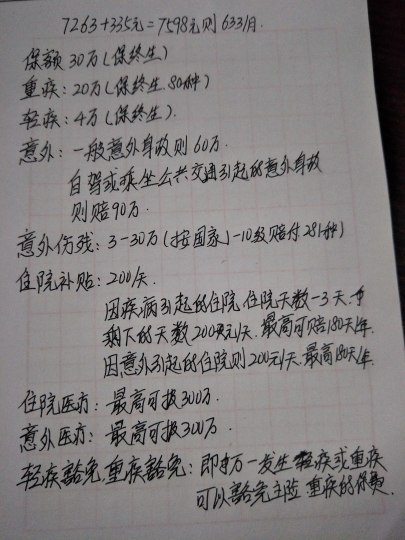 7263+335元=7598元则633/月
保额30万(保终生)
重疾:20万(保终生.80种)
轻疾:4万(保终生).
意外:一般意外身故则60万.
自驾或乘坐公共交通引起的意外身故
则赔90万.
意外伤残:3-30万(按国家1-10级赔付281种)
住院补贴:200/天.
因疾病引起的住院 住院天数-3天.
剩下的天数200元/天.最高可赔180天/年.
因意外引起的住院则200元/天.最高180天/年.
住院医疗:最高可报300万.
意外医疗:最高可报300万.
轻疾豁免.重疾豁免:即万一发生轻疾或重疾
可以豁免主险 重疾的保费.